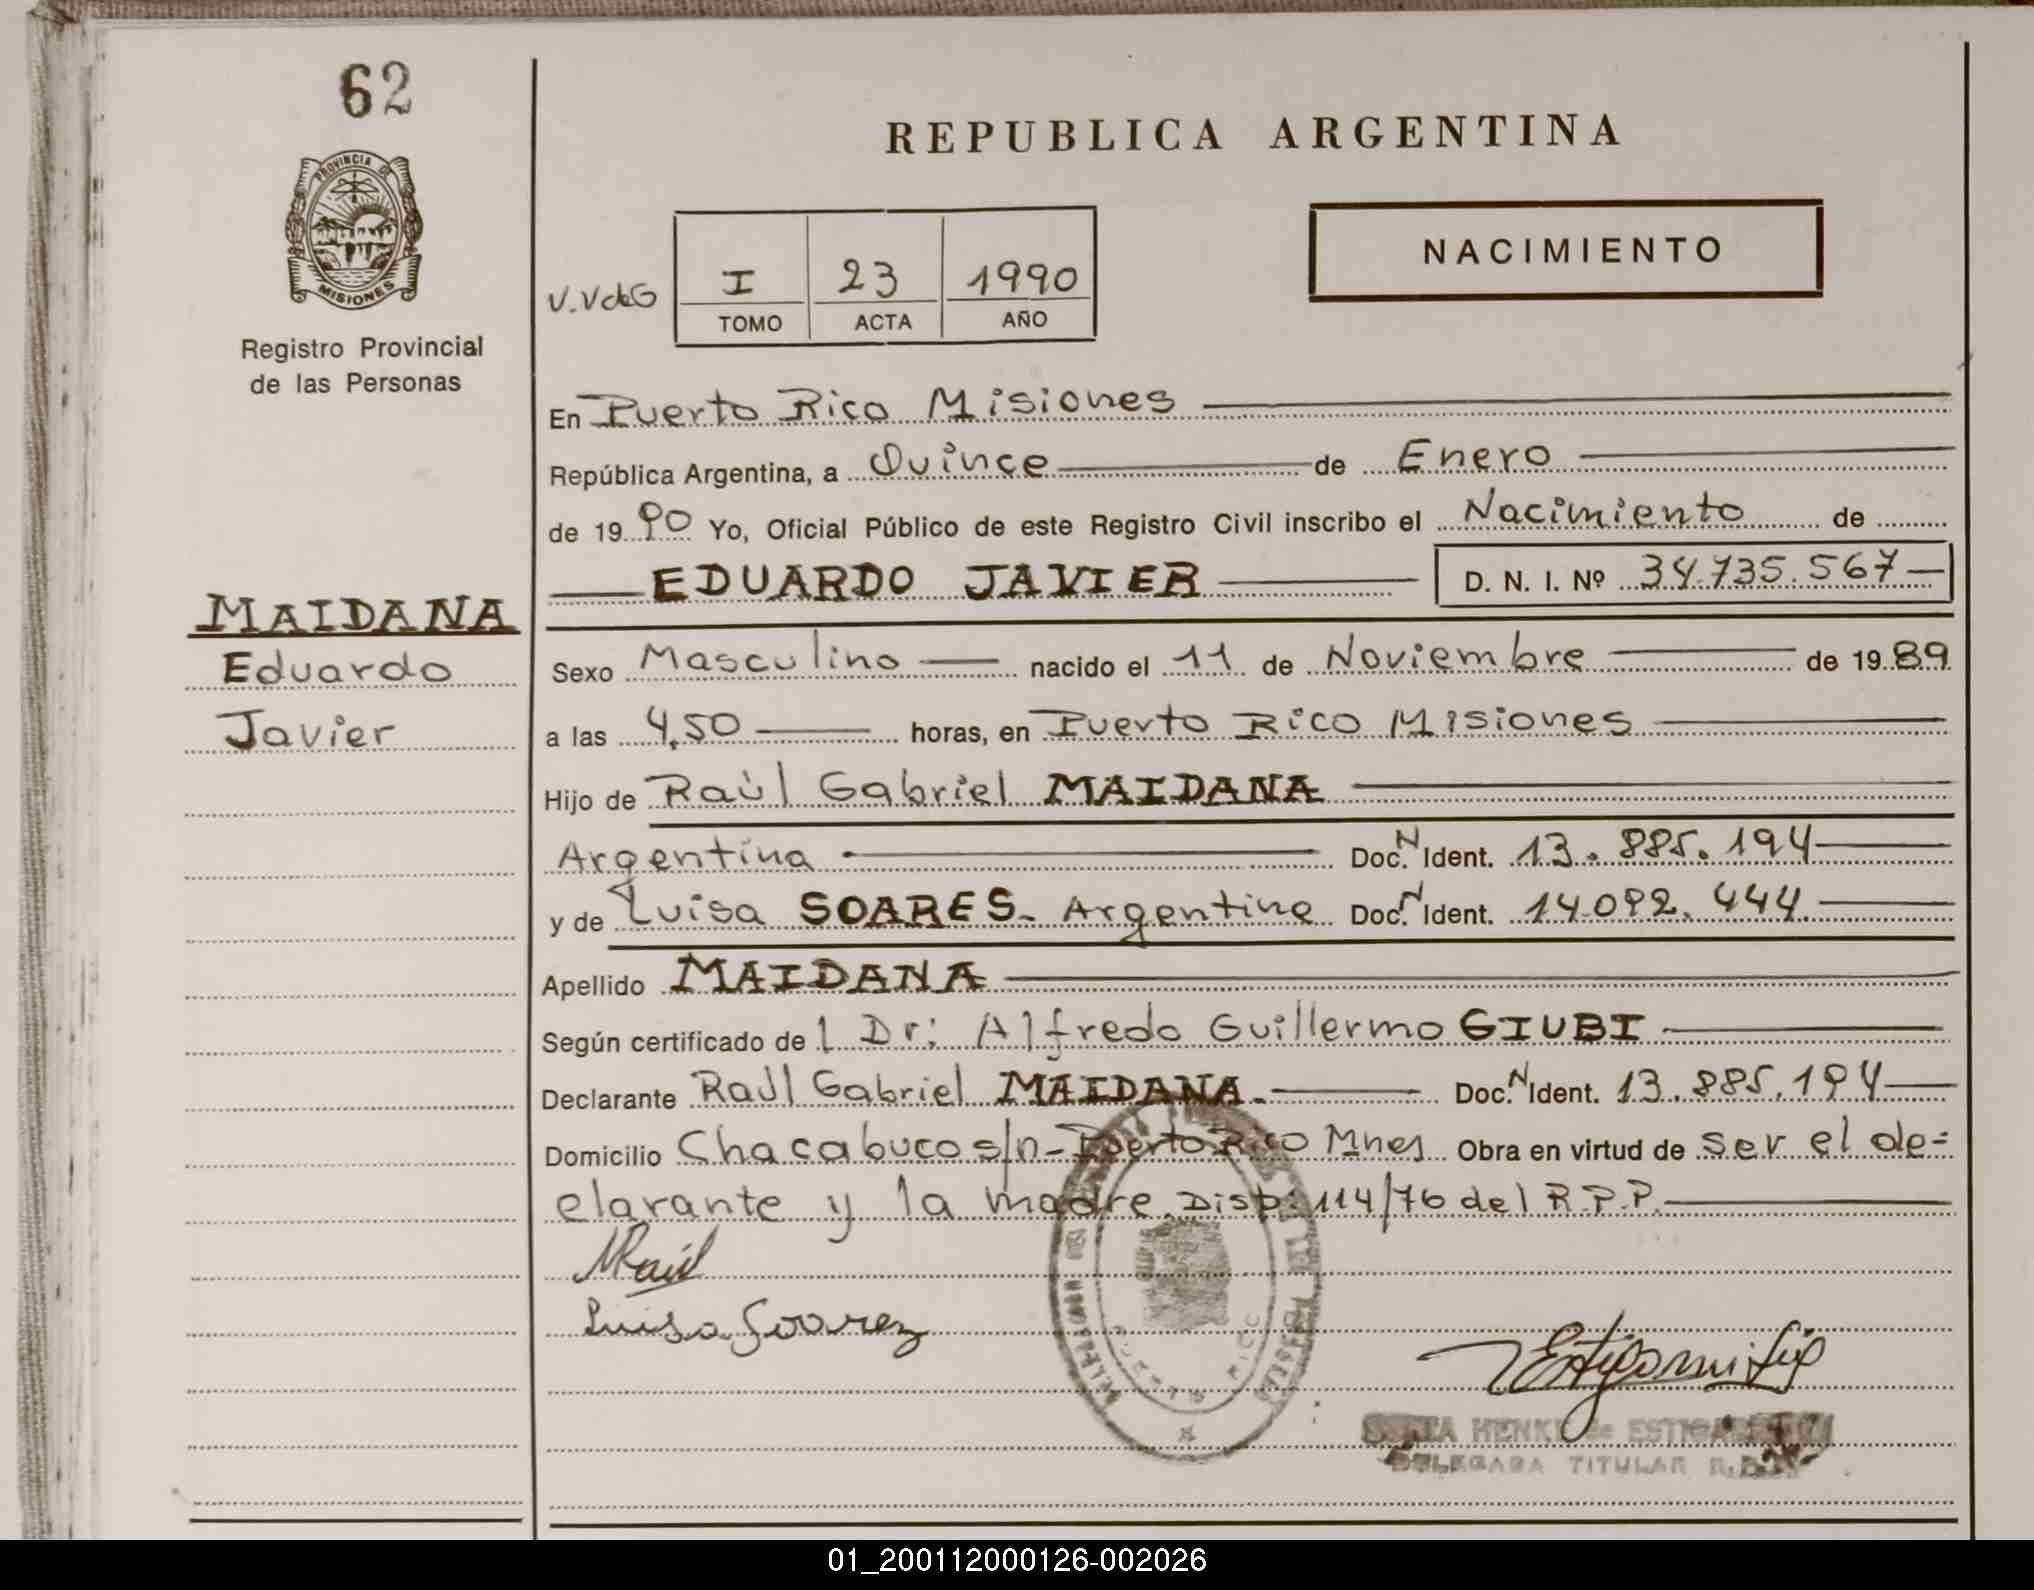 62
PROVINCIA DE
MISIONES
Registro Provincial
de las Personas
MAIDANA
Eduardo
Javier
REPUBLICA ARGENTINA
NACIMIENTO
V.VdeG
I 23 1990
TOMO ACTA AÑO
En Puerto Rico Misiones
República Argentina, a Quince de Enero
de 19 90 Yo, Oficial Público de este Registro Civil inscribo el Nacimiento de
EDUARDO JAVIER D. N. I. Nº 34.735.567
Sexo Masculino nacido el 11 de Noviembre de 19 89
a las 4,50 horas, en Puerto Rico Misiones
Hijo de Raúl Gabriel MAIDANA
Argentina Doc. N Ident. 13.885.194
y de Luisa SOARES- Argentina Doc. N Ident. 14.092.444
Apellido MAIDANA
Según certificado de l Dr: Alfredo Guillermo GIUBI
Declarante Raúl Gabriel MAIDANA.- Doc. N Ident. 13.885.194
Domicilio Chacabuco s/n- Puerto Rico Mnes Obra en virtud de ser el de=
clarante y la madre. Disp: 114/76 del R.P.P.
Raúl
Luisa Soarez
PUERTO RICO
HENKE de
DELEGADA TITULAR
01_200112000126-002026